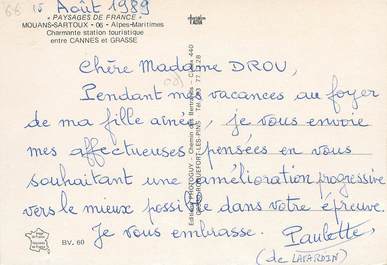 15 Août 1989
« PAYSAGES DE FRANCE »
MOUANS-SARTOUX - 06 - Alpes-Maritimes
Charmante station touristique
entre CANNES et GRASSE
Chère Madame DROU,
Pendant mes vacances au foyer
de ma fille aînée, je vous envoie
mes affectueuses pensées en vous
souhaitant une amélioration progressive
vers le mieux possible dans votre épreuve.
Je vous embrasse. Paulette
(de LAVARDIN)
BV. 60